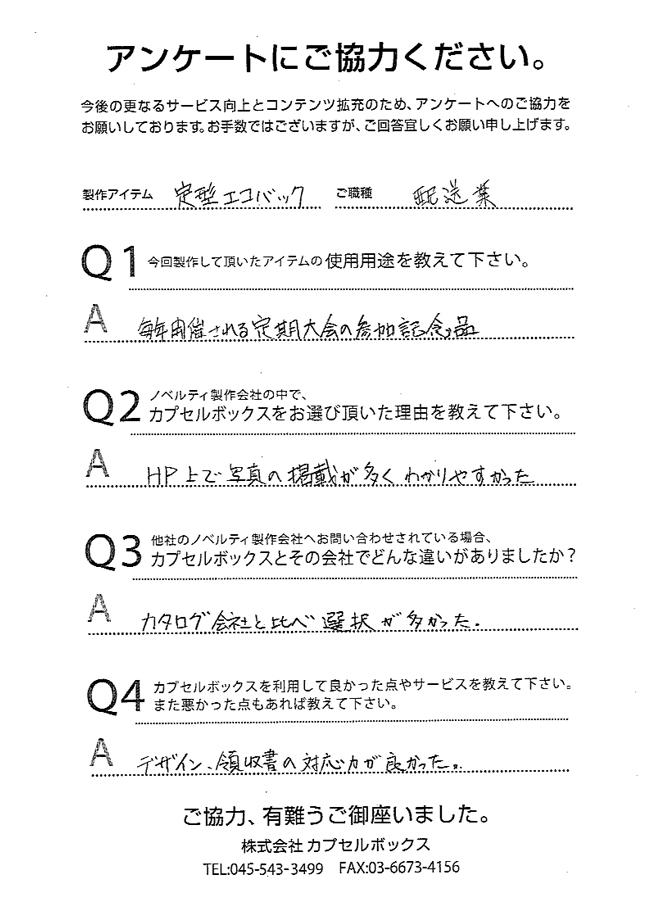 アンケートにご協力ください。
今後の更なるサービス向上とコンテンツ拡充のため、アンケートへのご協力を
お願いしております。お手数ではございますが、ご回答宜しくお願い申し上げます。
製作アイテム 定型エコバック ご職種 配送業
Q1 今回製作して頂いたアイテムの使用用途を教えて下さい。
A 毎年開催される定期大会の参加記念品
Q2 ノベルティ製作会社の中で、
カプセルボックスをお選び頂いた理由を教えて下さい。
A HP上で写真の掲載が多くわかりやすかった
Q3 他社のノベルティ製作会社へお問い合わせされている場合、
カプセルボックスとその会社でどんな違いがありましたか?
A カタログ会社と比べ選択が多かった.
Q4 カプセルボックスを利用して良かった点やサービスを教えて下さい。
また悪かった点もあれば教えて下さい。
A デザイン、領収書の対応力が良かった。
ご協力、有難うご御座いました。
株式会社カプセルボックス
TEL:045-543-3499 FAX:03-6673-4156